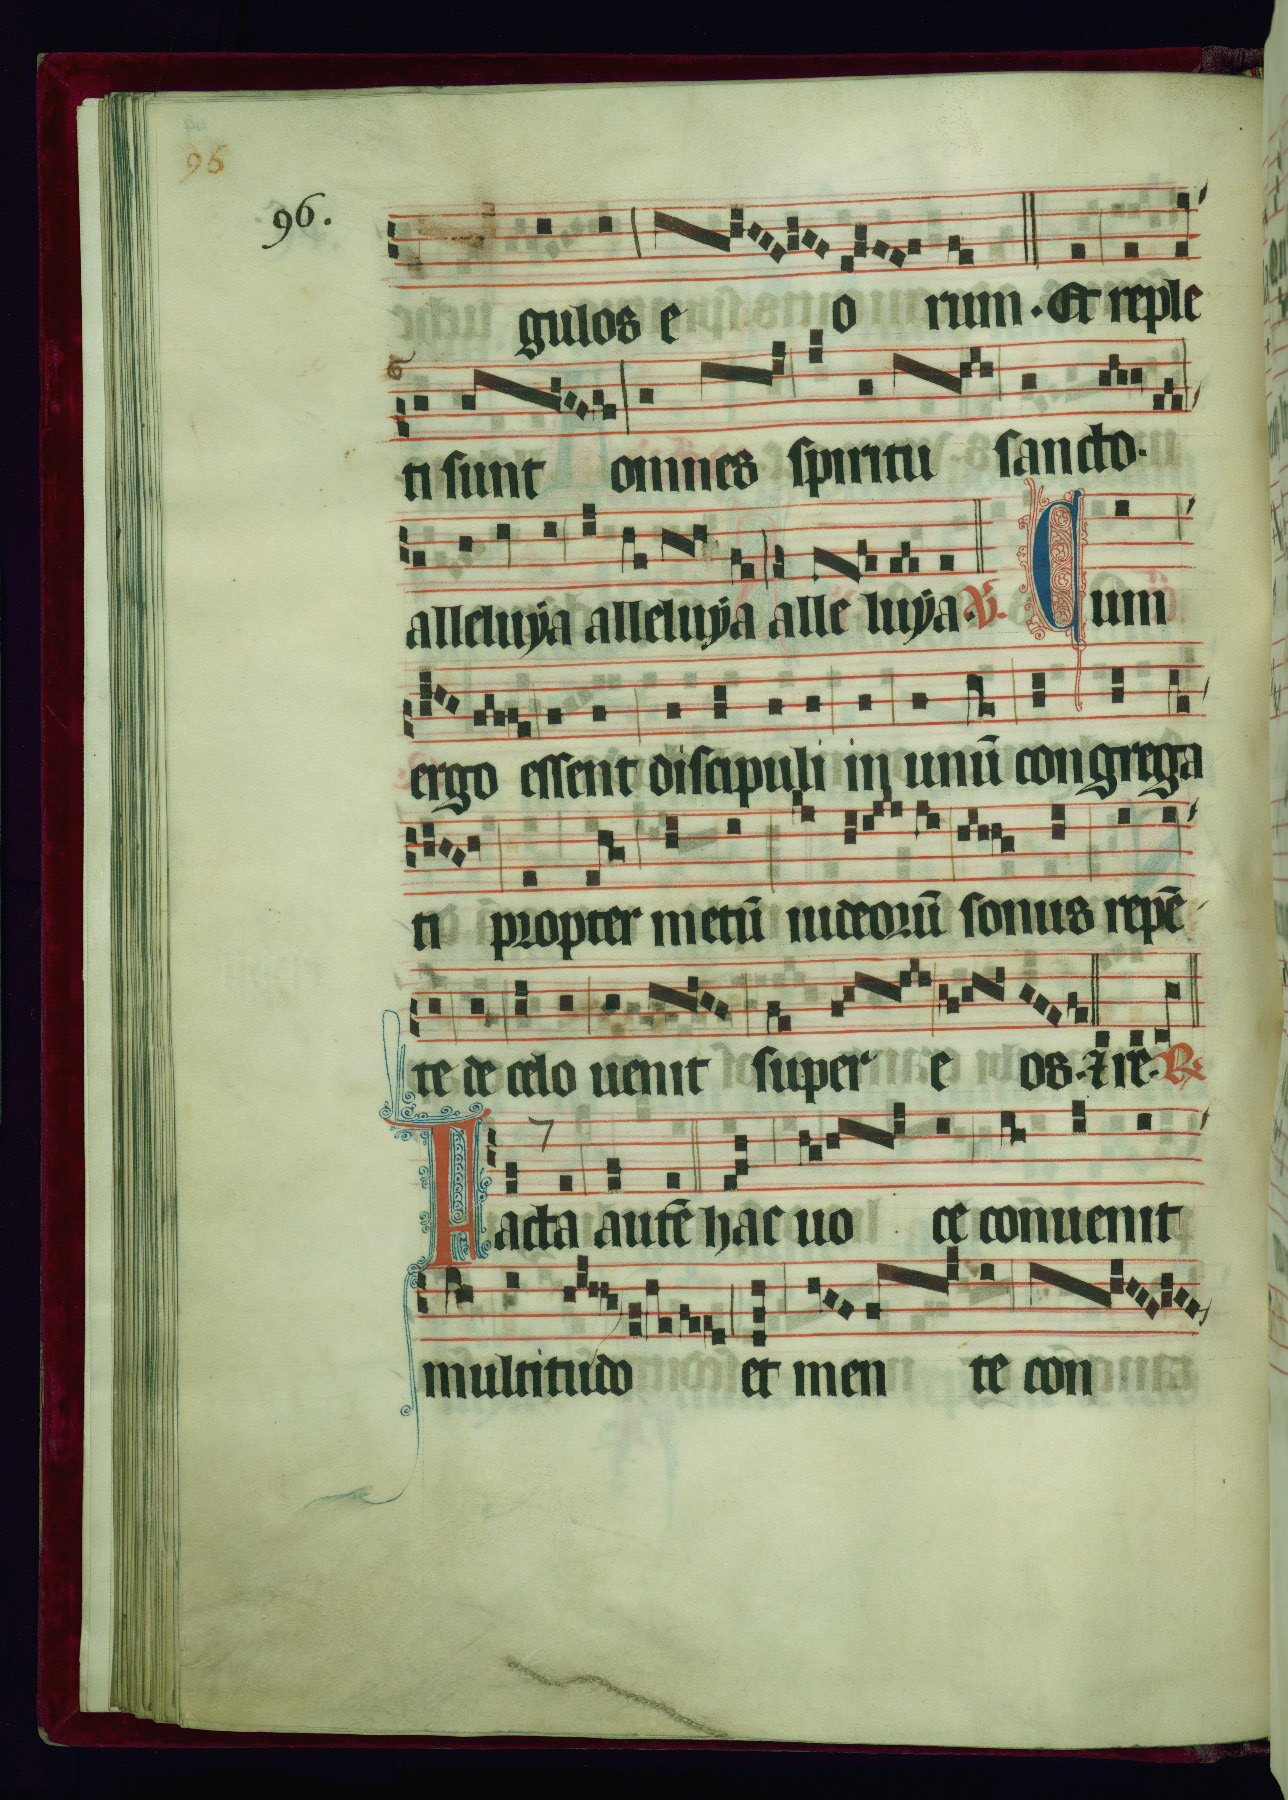 96
96.
gulos e o rum. Et reple
ti sunt omnes spiritu sancto.
alleluÿa alleluÿa alle luÿa. V. Cum
ergo essent discipuli in unū congrega
ti propter metū iudeorū sonus repē
te de celo uenit super e os. ⁊ rē. R
Facta autē hac uo ce conuenit
7
multitudo et men te con